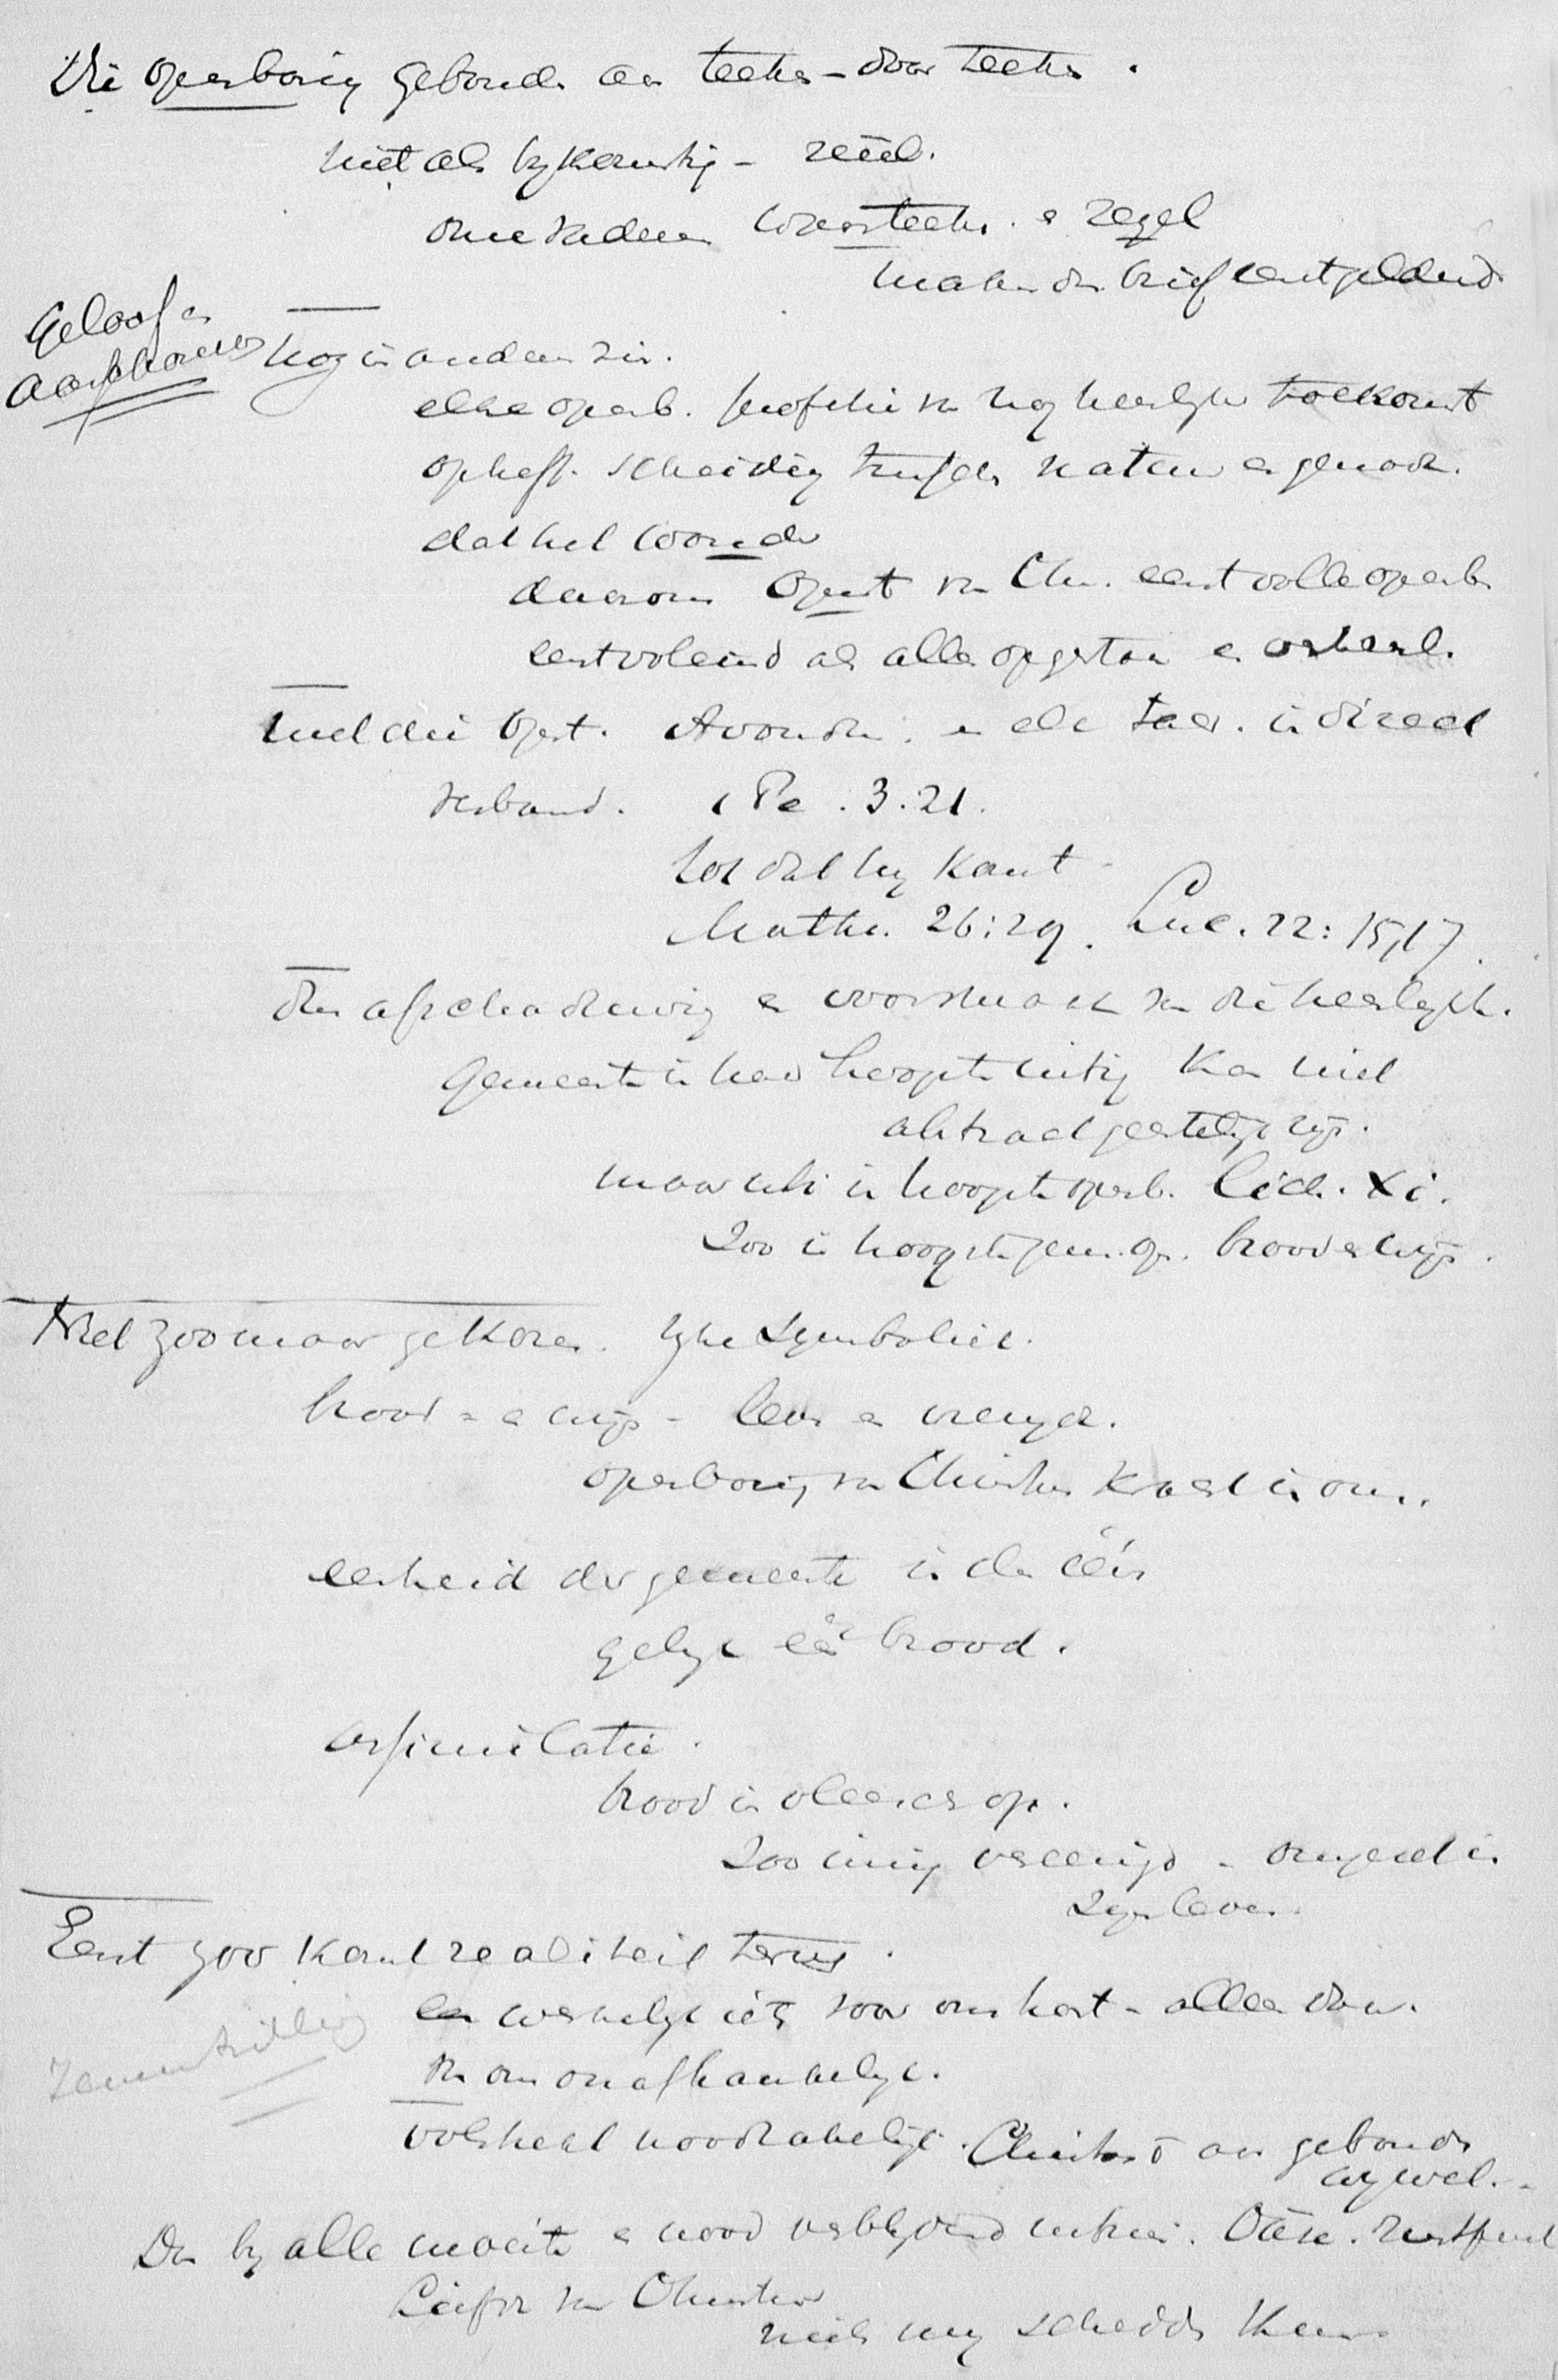 Die openbaring gebonden aan teeken - door teeken.
niet als bykomstig - reëel.
onze vaderen teeken. e zegel
maken den brief eerst geldend
Geloof en
aanschouwen
Nog in anderen zin.
elke openb. profetie van nog heerlyker toekomst
opheff. scheiding tusschen natuur en genade.
dat het woord
daarom Opst van Chr. eerst volle openb.
eerst voleind als allen opgestaan
met die Opst. Avondm. en elk in direct
verband. 1 Pe. 3.21.
tot dat hy komt
Matth. 26:29. Luc. 22: 15,17.
den afschaduwing e voorsmaak van die heerlykh.
Gemeente in haar hoogste uiting kan niet
abstract geestelijk zijn.
maar uit in hoogste openb. Lich. Xi.
Zoo in hoogste gem. op. brood e wijn.
Niet zoo maar gekozen. Ryke Symboliek.
brood - e wijn - leven e vreugde.
openbaring van Christus kracht in ons.
eenheid der gemeente in den één
gelyk één brood.
assimilatie.
brood in vleesch op.
Zoo innig vereenigd - omgezet in
Zyn leven.
Eerst zoo komt realiteit terug.
een werkelyk iets voor ons hart - alleen dan.
van ons onafhankelyk.
volstrekt noodzakelijk. Christus niet aan gebonden
wy wel. -
Dan by alle moeite e nood verblydend uitzien. rustpunt
Liefde van Christus
niets my scheiden kan.